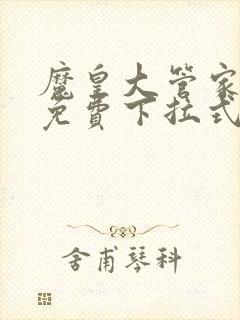 魔皇大管家
免費下拉式
舍甫琴科